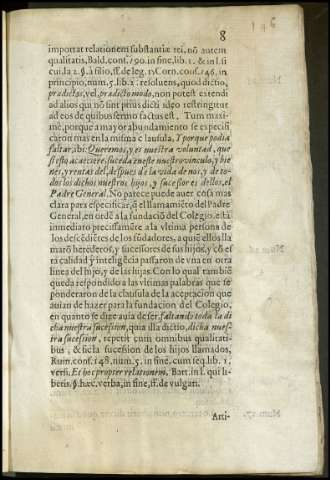 8
146
importat relationem substantiæ rei, nõ autem
qualitatis, Bald. conf. 190. in fine, lib. 1. & in l. si
cui. la 2. §. à filio, ff. de leg. 1. Corn. conf. 146. in
principio, num. 5. lib. 2. resoluens, quod dictio,
prædictos, vel, prædicto modo, non potest extendi
ad alios qui nõ sint prius dicti ideo restringitur
ad eos de quibus sermo factus est. Tum maxi-
mè, porque a mayor abundamiento se especifi
caron mas en la misma clausula, Y porque podia
faltar, ibi: Queremos, y es nuestra voluntad, que
si esto acaeciere, suceda en este nuestro vinculo, y bie
nes, y rentas del, despues de la vida de nos, y de to-
dos los dichos nuestros hijos, y sucessores dellos, el
Padre General. No parece puede auer cosa mas
clara para especificar, q̃ el llamamiẽto del Padre
General, en ordẽ a la fundaciõ del Colegio, està
inmediato precissamẽte a la vltima persona de
los descẽdiẽtes de los fũdadores, a quiẽ ellos lla
marõ herederos, y sucessores de sus hijos, y cõ es
ta calidad y inteligẽcia passaron de vna en otra
linea del hijo, y de las hijas. Con lo qual tambiẽ
queda respondido a las vltimas palabras que se
ponderaron de la clausula de la aceptacion que
auian de hazer para la fundacion del Colegio,
en quanto se dize auia de ser, faltando toda la di
cha nuestra sucession, quia illa dictio, dicha nues-
tra sucession, repetit cum omnibus qualitati-
bus, & sic la sucession de los hijos llamados,
Ruin. conf. 148. num. 5. in fine. cum seq. lib. 1.
vers. Et hec propter relationem. Bart. in l. qui li-
beris. §. hæc verba, in fine, ff. de vulgari.
Arti-